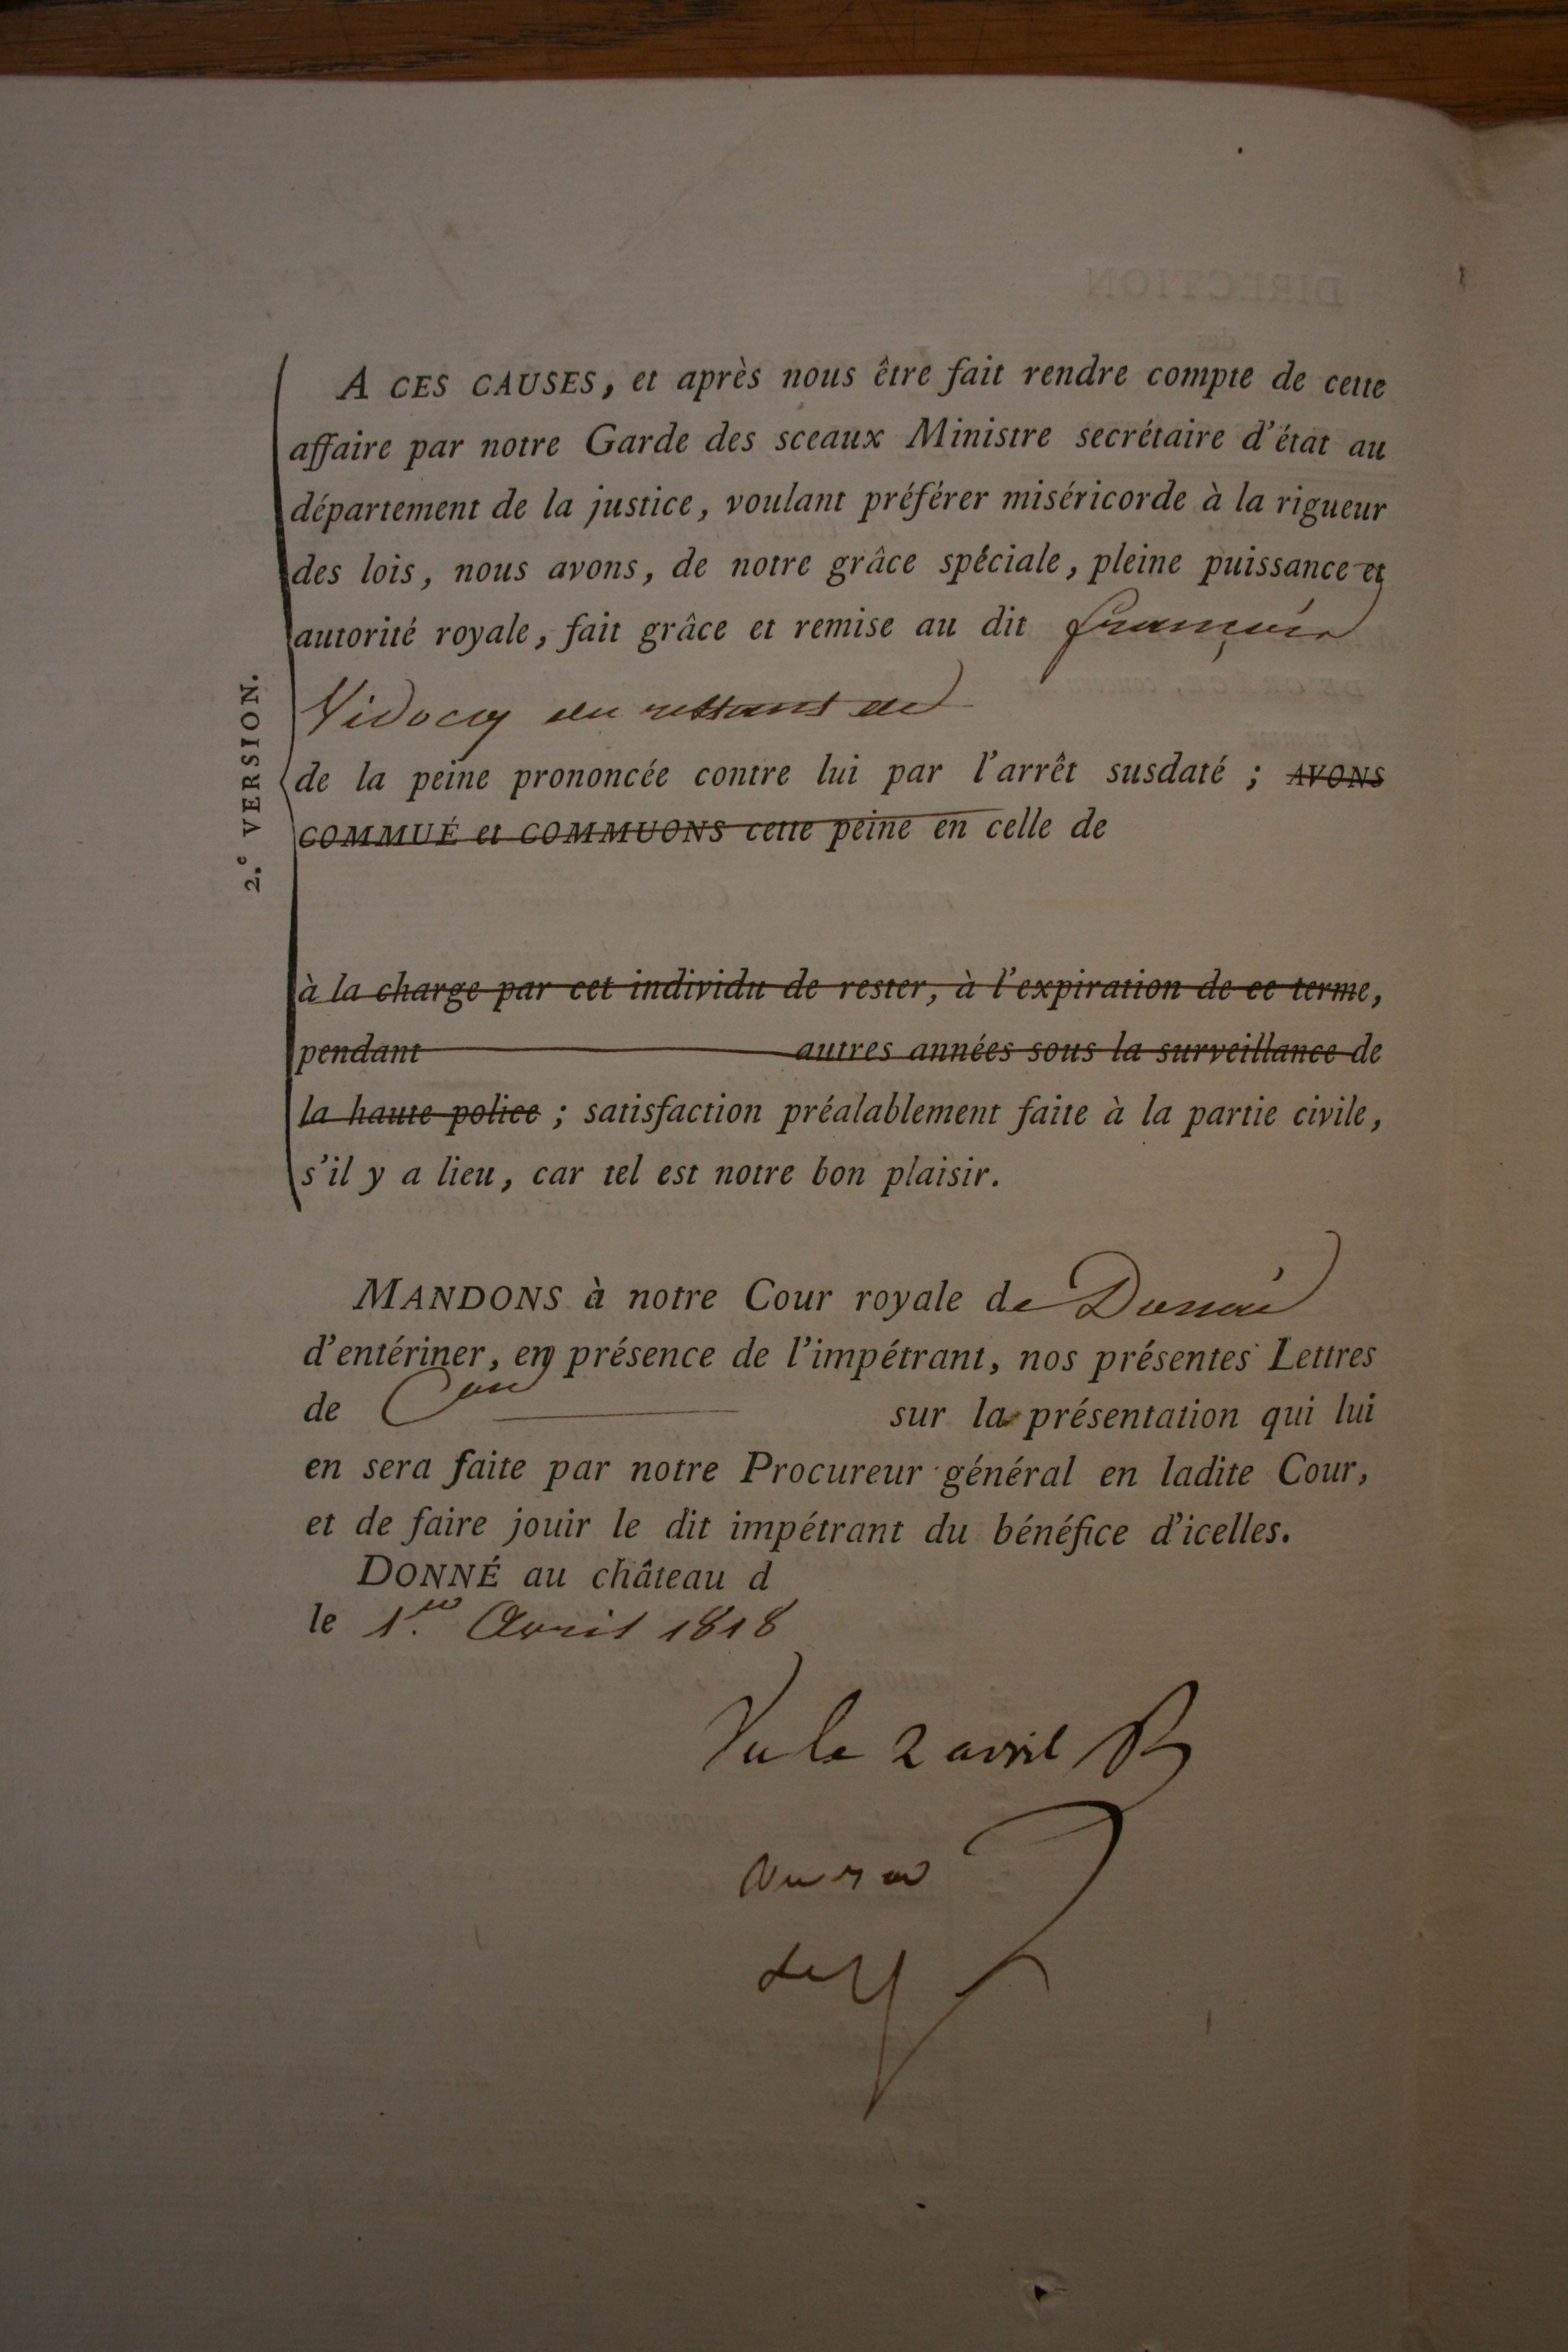 A CES CAUSES, et après nous être fait rendre compte de cette
affaire par notre Garde des sceaux Ministre secrétaire d'état au
département de la justice, voulant préférer miséricorde à la rigueur
des lois, nous avons, de notre grâce spéciale, pleine puissance et
autorité royale, fait grâce et remise au dit françois
2.e VERSION.
Vidocq du restant de
de la peine prononcée contre lui par l'arrêt susdaté ; AVONS
COMMUÉ et COMMUONS cette peine en celle de
à la charge par cet individu de rester, à l'expiration de ce terme,
pendant autres années sous la surveillance de
la haute police ; satisfaction préalablement faite à la partie civile,
s'il y a lieu, car tel est notre bon plaisir.
MANDONS à notre Cour royale de Douai
d'entériner, en présence de l'impétrant, nos présentes Lettres
de sur la présentation qui lui
en sera faite par notre Procureur général en ladite Cour,
et de faire jouir le dit impétrant du bénéfice d'icelles.
DONNÉ au château d
le 1.er Avril 1818
Vu le 2 avril